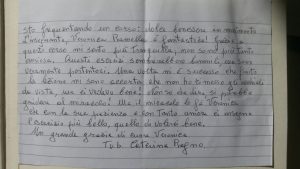 Sto frequentando un corso: dolce benessere in movimento
l'insegnante, Veronica Pramello è fantastica! Grazie a
questi corsi mi sento più tranquilla, non sono più tanto
ansiosa. Questi esercizi sembrerebbero banali, ma sono
veramente portentosi. Una volta mi è successo che finita
la lezione mi sono accorta che non ho messo gli occhiali
da vista, ma ci vedevo bene! Forse da dire si potrebbe
gridare al miracolo! Ma il miracolo lo fa Veronica
che con la sua pazienza e con tanto amore ci insegna
l'esercizio più bello, quello di volersi bene.
Un grande grazie di cuore Veronica.
Caterina